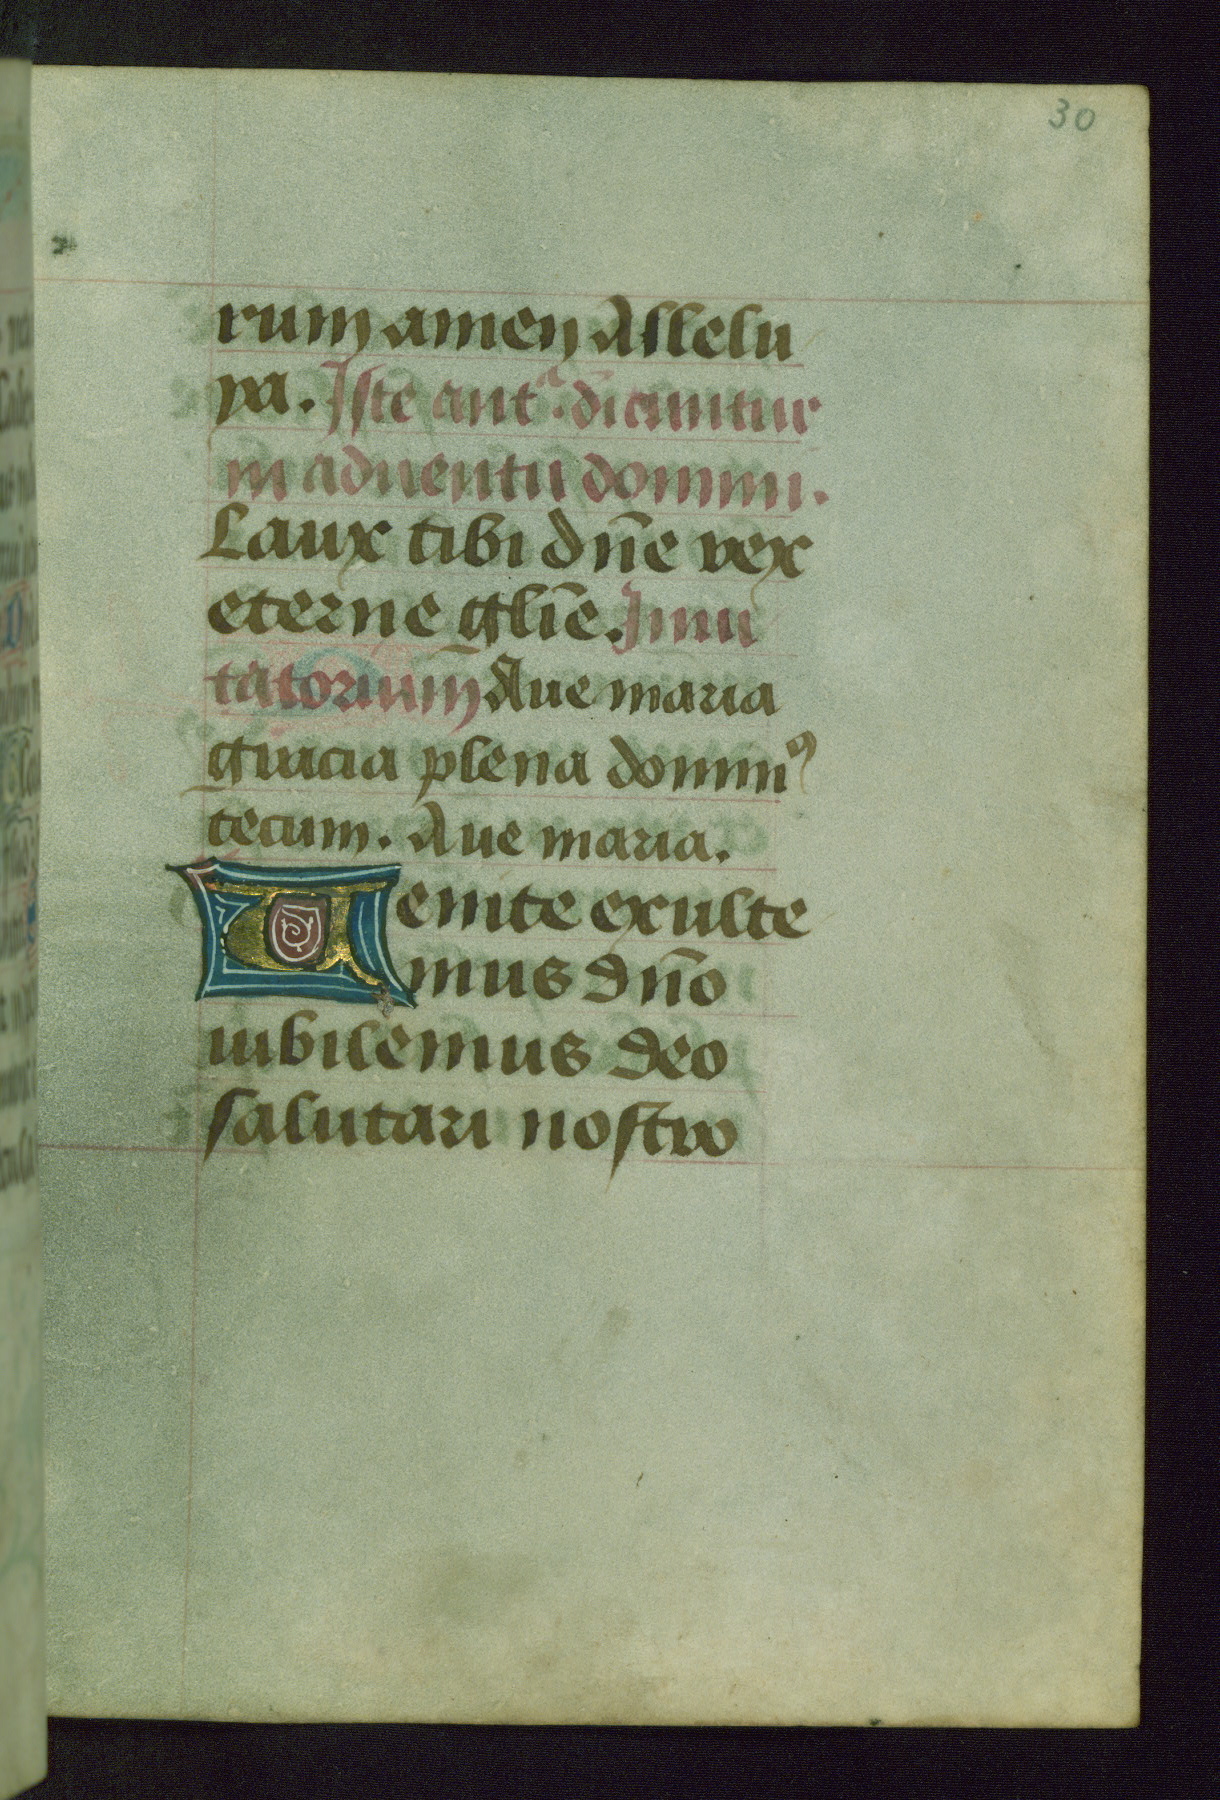 30
rum amen Allelu
ya. Iste antᵃ. dicuntur
in aduentu domini.
Laux tibi dn̄e rex
eterne gli̅e. Inui
tatorium Aue maria
gracia plena dominꝰ
tecum. Aue maria.
Uenite exulte
mus dn̄o
iubilemus deo
salutari nostro